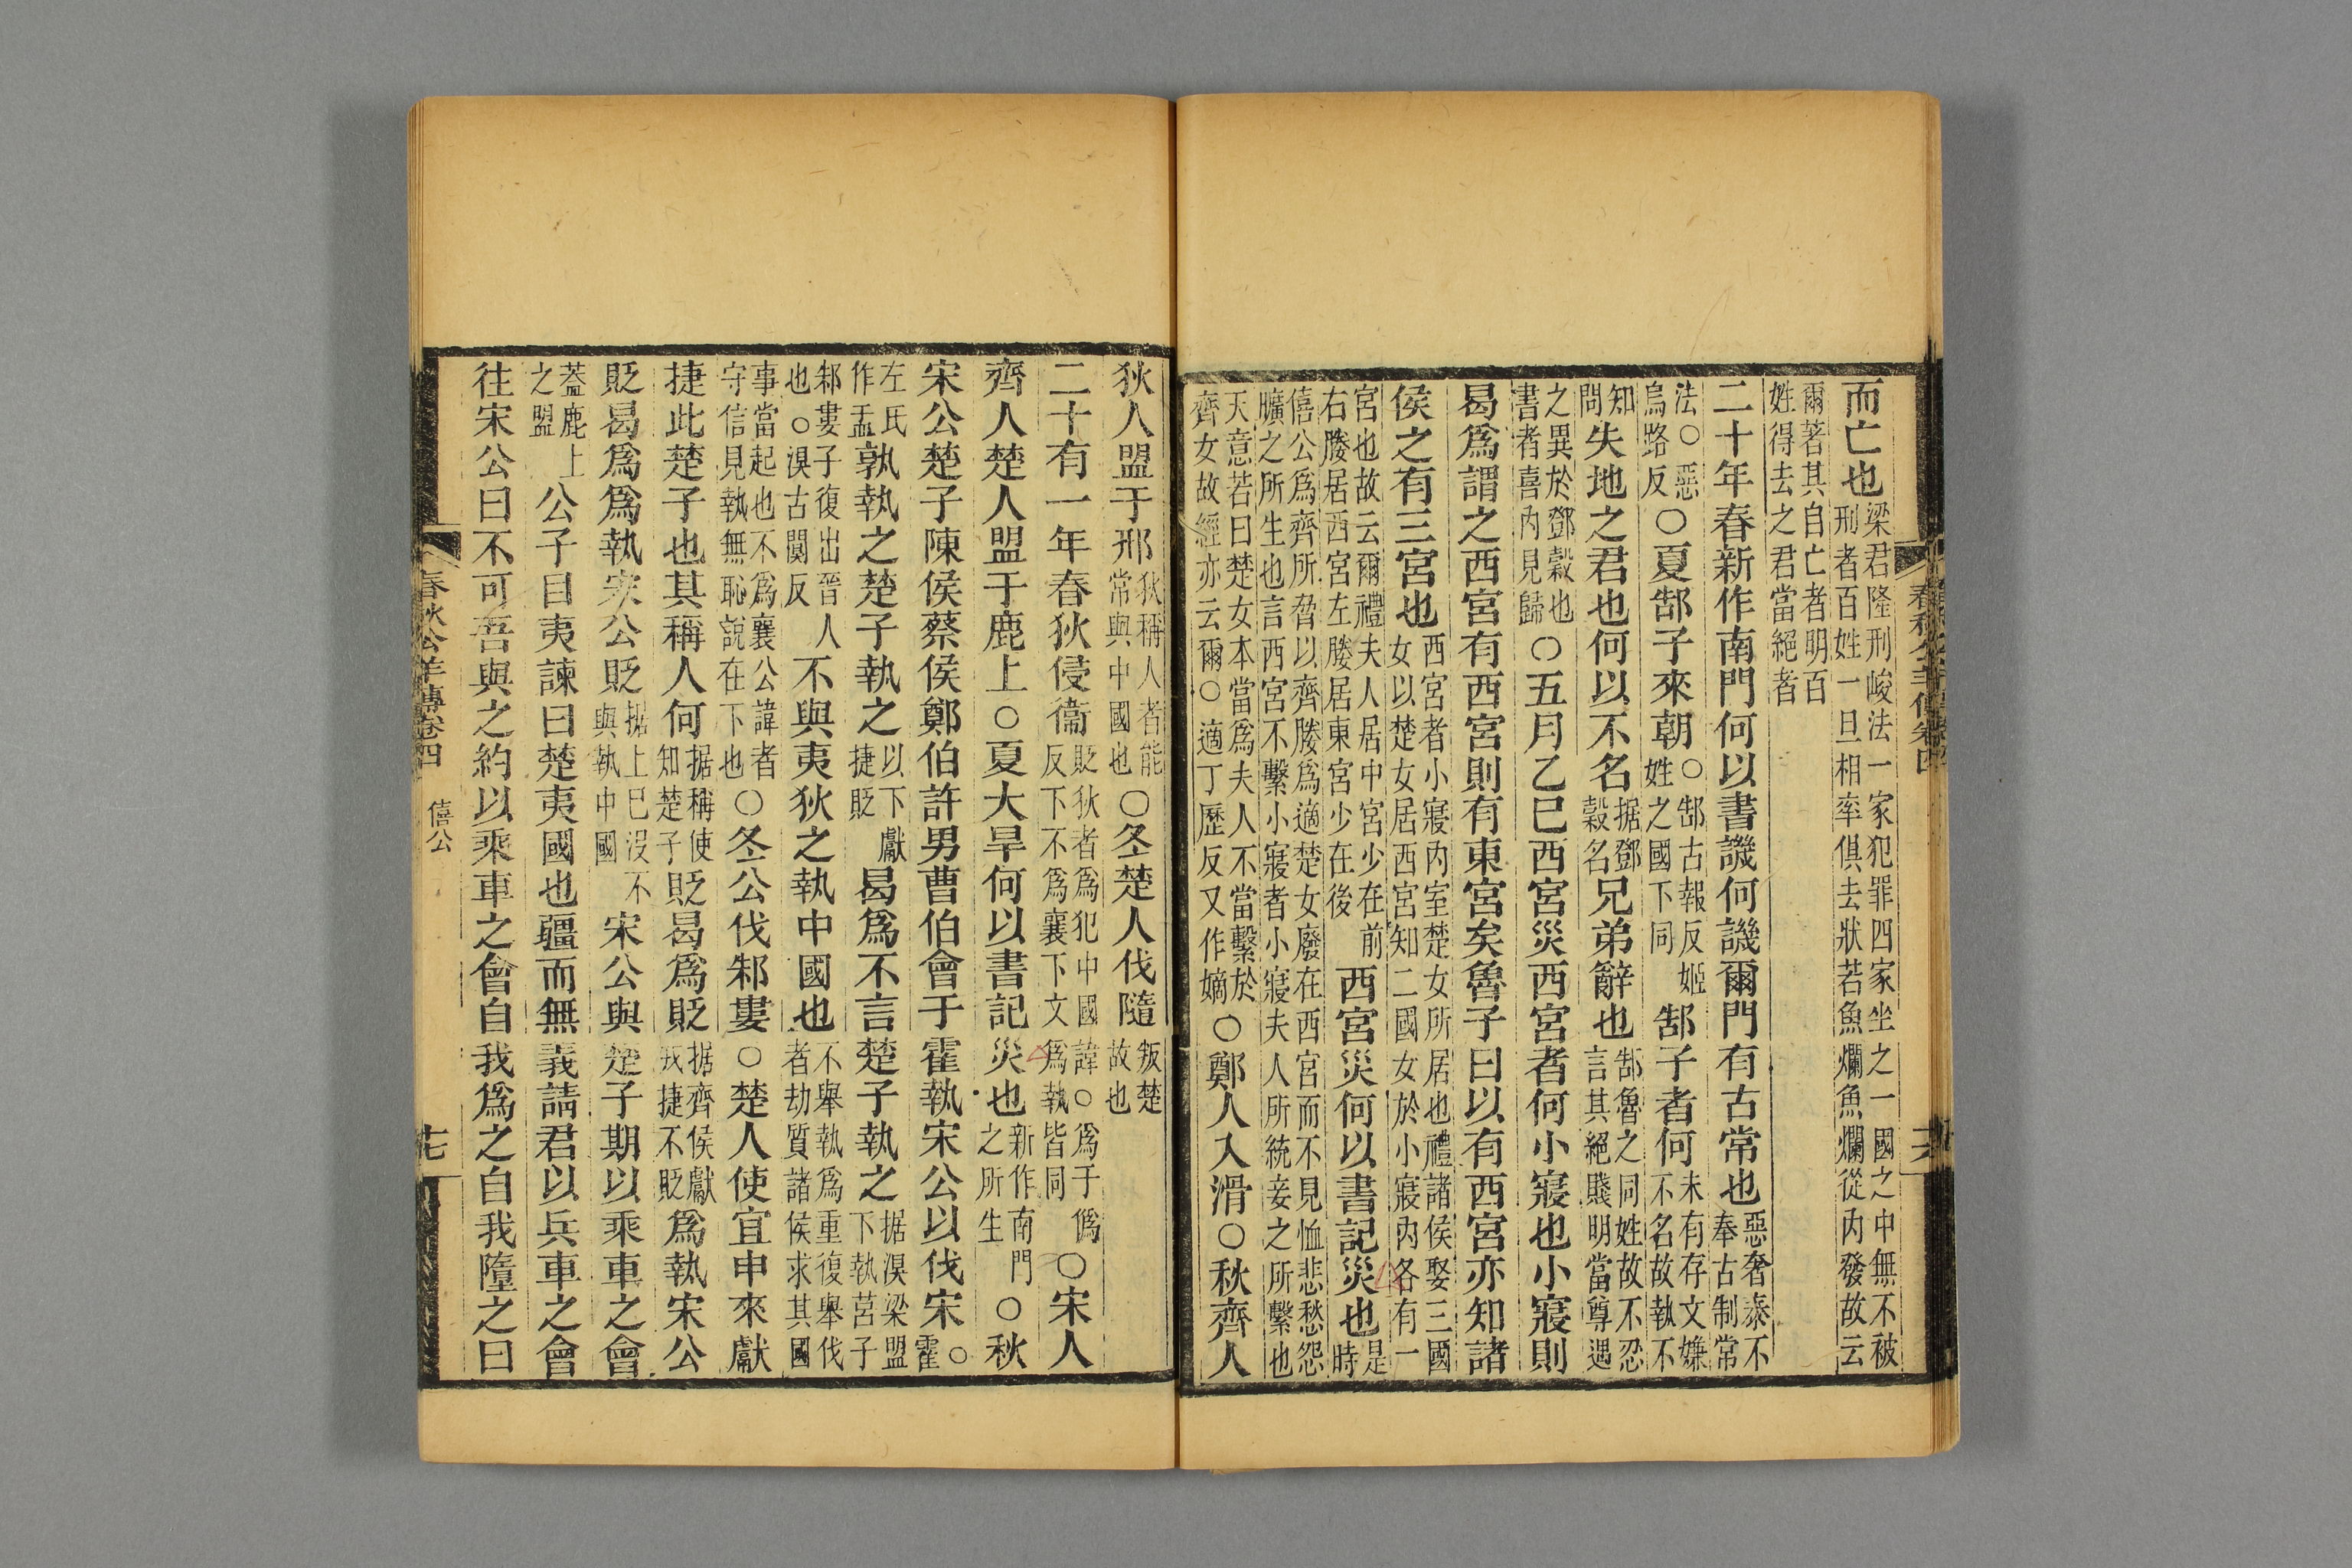 而亡也梁君隆刑峻法一家犯罪四家坐之一國之中無不被刑者百姓一旦相率俱去狀若魚爛魚爛從內發故云
爾著其自亡者明百姓得去之君當絕者
二十年春新作南門何以書譏何譏爾門有古常也惡奢泰不奉古制常
法○惡烏路反○夏郜子來朝○郜古報反姬姓之國下同郜子者何未有存文嫌不名故執不
知問失地之君也何以不名据鄧穀名兄弟辭也郜魯之同姓故不忍言其絕賤明當尊遇
之異於鄧穀也書者喜內見歸○五月乙巳西宮災西宮者何小寢也小寢則
曷爲謂之西宮有西宮則有東宮矣魯子曰以有西宮亦知諸
侯之有三宮也西宮者小寢內室楚女所居也禮諸侯娶三國女以楚女居西宮知二國女於小寢內各有一
宮也故云爾禮夫人居中宮少在前右媵居西宮左媵居東宮少在後西宮災何以書記災也是時
僖公爲齊所脅以齊媵爲適楚女廢在西宮而不見恤悲愁怨曠之所生也言西宮不繫小寢者小寢夫人所統妾之所繫也
天意若曰楚女本當爲夫人不當繫於齊女故經亦云爾○適丁歷反又作嫡○鄭人入滑○秋齊人
狄人盟于邢狄稱人者能常與中國也○冬楚人伐隨叛楚故也
二十有一年春狄侵衞貶狄者爲犯中國諱○爲于僞反下不爲襄下文爲執皆同○宋人
齊人楚人盟于鹿上○夏大旱何以書記災也新作南門之所生○秋
宋公楚子陳侯蔡侯鄭伯許男曹伯會于霍執宋公以伐宋○霍
左氏作盂孰執之楚子執之以下獻捷貶曷爲不言楚子執之据湨梁盟下執莒子
邾婁子復出晉人也○湨古闃反不與夷狄之執中國也不舉執爲重復舉伐者劫質諸侯求其國
事當起也不爲襄公諱者守信見執無恥說在下也○冬公伐邾婁○楚人使宜申來獻
捷此楚子也其稱人何据稱使知楚子貶曷爲貶据齊侯獻戎捷不貶爲執宋公
貶曷爲爲執宋公貶据上巳沒不與執中國宋公與楚子期以乘車之會
蓋鹿上之盟公子目夷諫曰楚夷國也疆而無義請君以兵車之會
往宋公曰不可吾與之約以乘車之會自我爲之自我墮之曰
春秋公羊傳卷四 僖公 十七